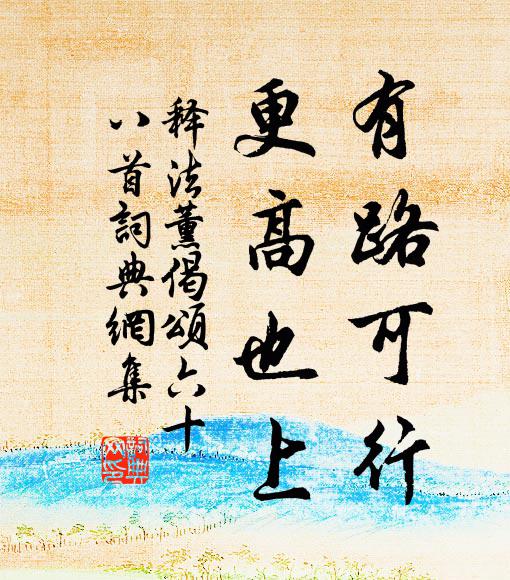 有路可行
更高也上
释法薰偈頌六十
八首詞典網集